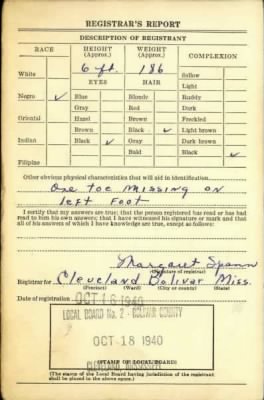 REGISTRAR'S REPORT
DESCRIPTION OF REGISTRANT
RACE HEIGHT (Approx.) WEIGHT (Approx.) COMPLEXION
White 6 ft. 186 Sallow
EYES HAIR Light
Negro ✓ Blue Blonde Ruddy
Gray Red Dark
Oriental Hazel Brown Freckled
Brown Black ✓ Light brown
Indian Black ✓ Gray Dark brown
Bald Black ✓
Filipino
Other obvious physical characteristics that will aid in identification
One toe missing on
left foot
I certify that my answers are true; that the person registered has read or has had
read to him his own answers; that I have witnessed his signature or mark and that
all of his answers of which I have knowledge are true, except as follows:
Margaret Spann
(Signature of registrar)
Registrar for Cleveland Bolivar Miss.
(Precinct) (Ward) (City or county) (State)
Date of registration OCT 16 1940
LOCAL BOARD No. 2 - BOLIVAR COUNTY
OCT 18 1940
CLEVELAND, MISSISSIPPI
(STAMP OF LOCAL BOARD)
(The stamp of the Local Board having jurisdiction of the registrant
shall be placed in the above space.)